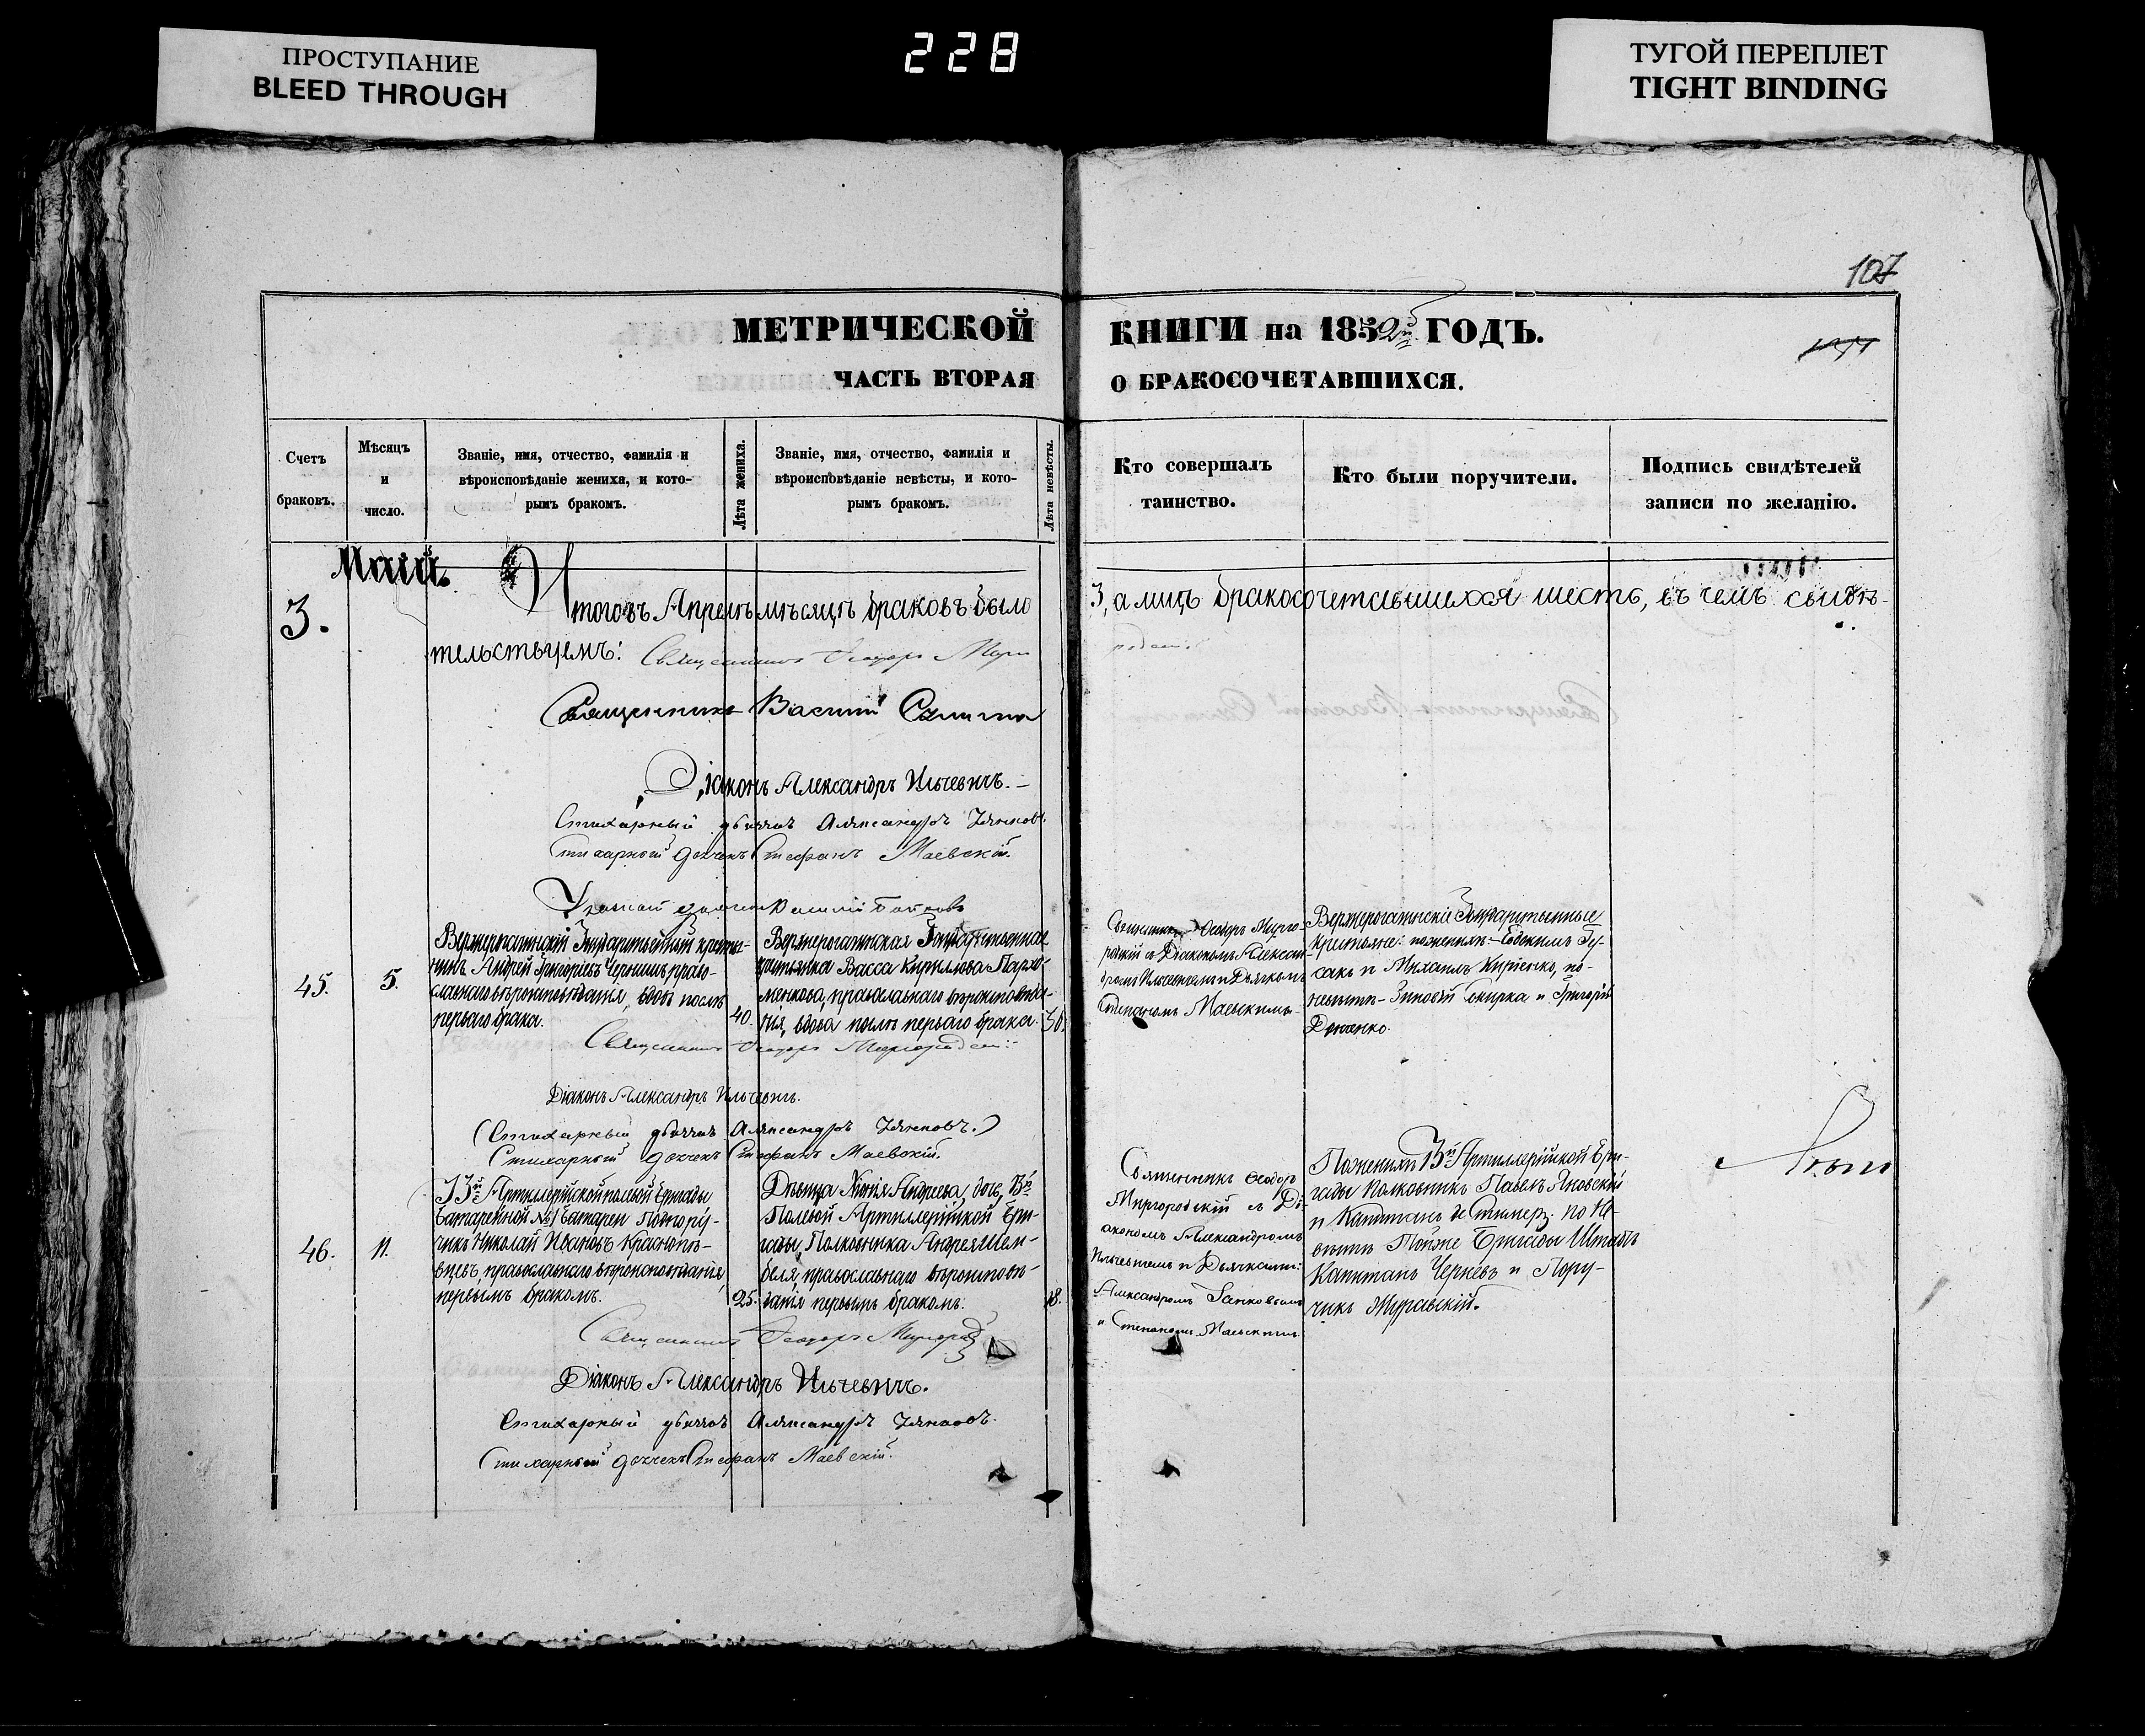 ПРОСТУПАНИЕ
BLEED THROUGH
228
ТУГОЙ ПЕРЕПЛЕТ
TIGHT BINDING
107
МЕТРИЧЕСКОЙ КНИГИ на 1852й ГОДЪ.
ЧАСТЬ ВТОРАЯ О БРАКОСОЧЕТАВШИХСЯ.
Счетъ
браковъ.
Мѣсяцъ
и
число.
Званіе, имя, отчество, фамилія и
вѣроисповѣданіе жениха, и кото-
рымъ бракомъ.
Лѣта жениха.
Званіе, имя, отчество, фамилія и
вѣроисповѣданіе невѣсты, и кото-
рымъ бракомъ.
Лѣта невѣсты.
Кто совершалъ
таинство.
Кто были поручители.
Подпись свидѣтелей
записи по желанію.
Май.
3.
Итого въ Апрелѣ мѣсяцѣ браковъ было 3, а лицъ бракосочетавшихся шесть, въ чемъ свидѣ-
тельствуемъ: Священникъ Ѳеодоръ Миргородскій
Священникъ Василій
Діаконъ Александръ Ильчевичъ.
Стихарный дьячокъ Александръ
Стихарный дьячекъ Стефанъ Маевскій.
Василій
45.
5.
Государственный крестья-
нинъ Андрей Григоріевъ Чернишъ, право-
славнаго вѣроисповѣданія, вдовъ послѣ
перваго брака.
40.
Государственная
крестьянка Васса Кириллова Пархо-
менкова, православнаго вѣроисповѣда-
нія, вдова послѣ перваго брака.
30.
Священникъ Ѳеодоръ Мирго-
родскій съ Діакономъ Алексан-
дромъ Ильчевичемъ и Дьячкомъ
Степаномъ Маевскимъ.
Государственные
крестьяне: по женихѣ – Евдокимъ Гу-
сакъ и Михаилъ Киріенко, по
невѣстѣ – Зиновій и Григорій
Священникъ Ѳеодоръ Миргородскій
Діаконъ Александръ Ильчевичъ.
Стихарный дьячокъ Александръ
Стихарный дьячекъ Стефанъ Маевскій.
46.
11.
13й Артиллерійской полевой бригады
батарейной №1 батареи Подпору-
чикъ Николай Ивановъ Краснопѣ-
вцевъ, православнаго вѣроисповѣданія,
первымъ бракомъ.
25.
Дѣвица Андреева, дочь 13й
Полевой Артиллерійской Бри-
гады Полковника Андрея Шем-
беля, православнаго вѣроисповѣ-
данія первымъ бракомъ.
18.
Священникъ Ѳеодоръ
Миргородскій съ Ді-
акономъ Александромъ
Ильчевичемъ и Дьячками:
Александромъ
и Степаномъ Маевскимъ.
По женихѣ 13й Артиллерійской Бри-
гады Полковникъ Павелъ Яновскій
и Капитанъ по не-
вѣстѣ Тойже Бригады Штабсъ
Капитанъ Черневъ и Пору-
чикъ Журавскій.
Священникъ Ѳеодоръ
Діаконъ Александръ Ильчевичъ.
Стихарный дьячокъ Александръ
Стихарный дьячекъ Стефанъ Маевскій.